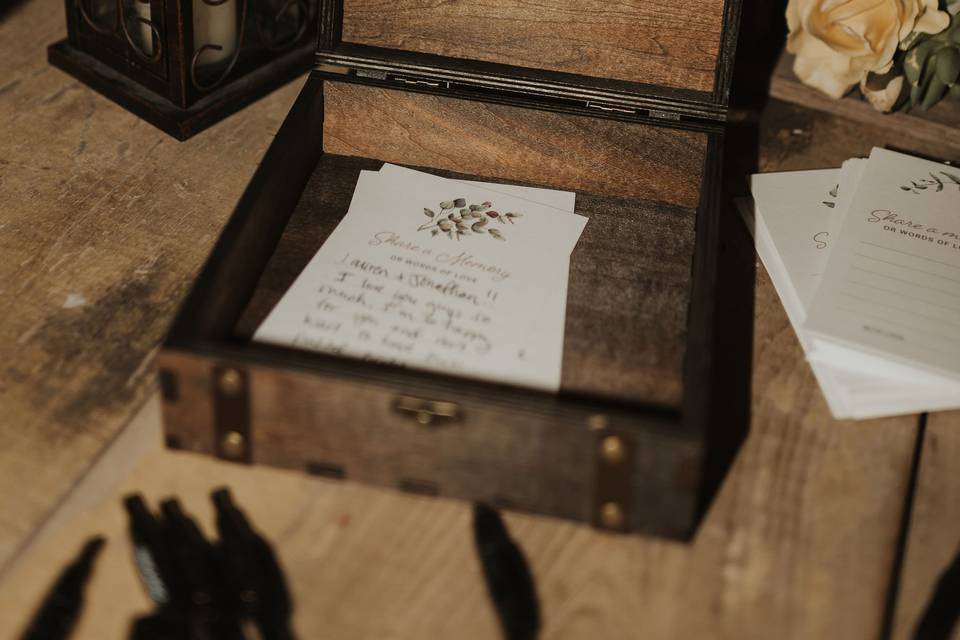 Share a Memory
OR WORDS OF LOVE
Lauren + Jonathan !!
I love you guys so
much. I'm so happy
for you and
want to
Share a m
OR WORDS OF L
S